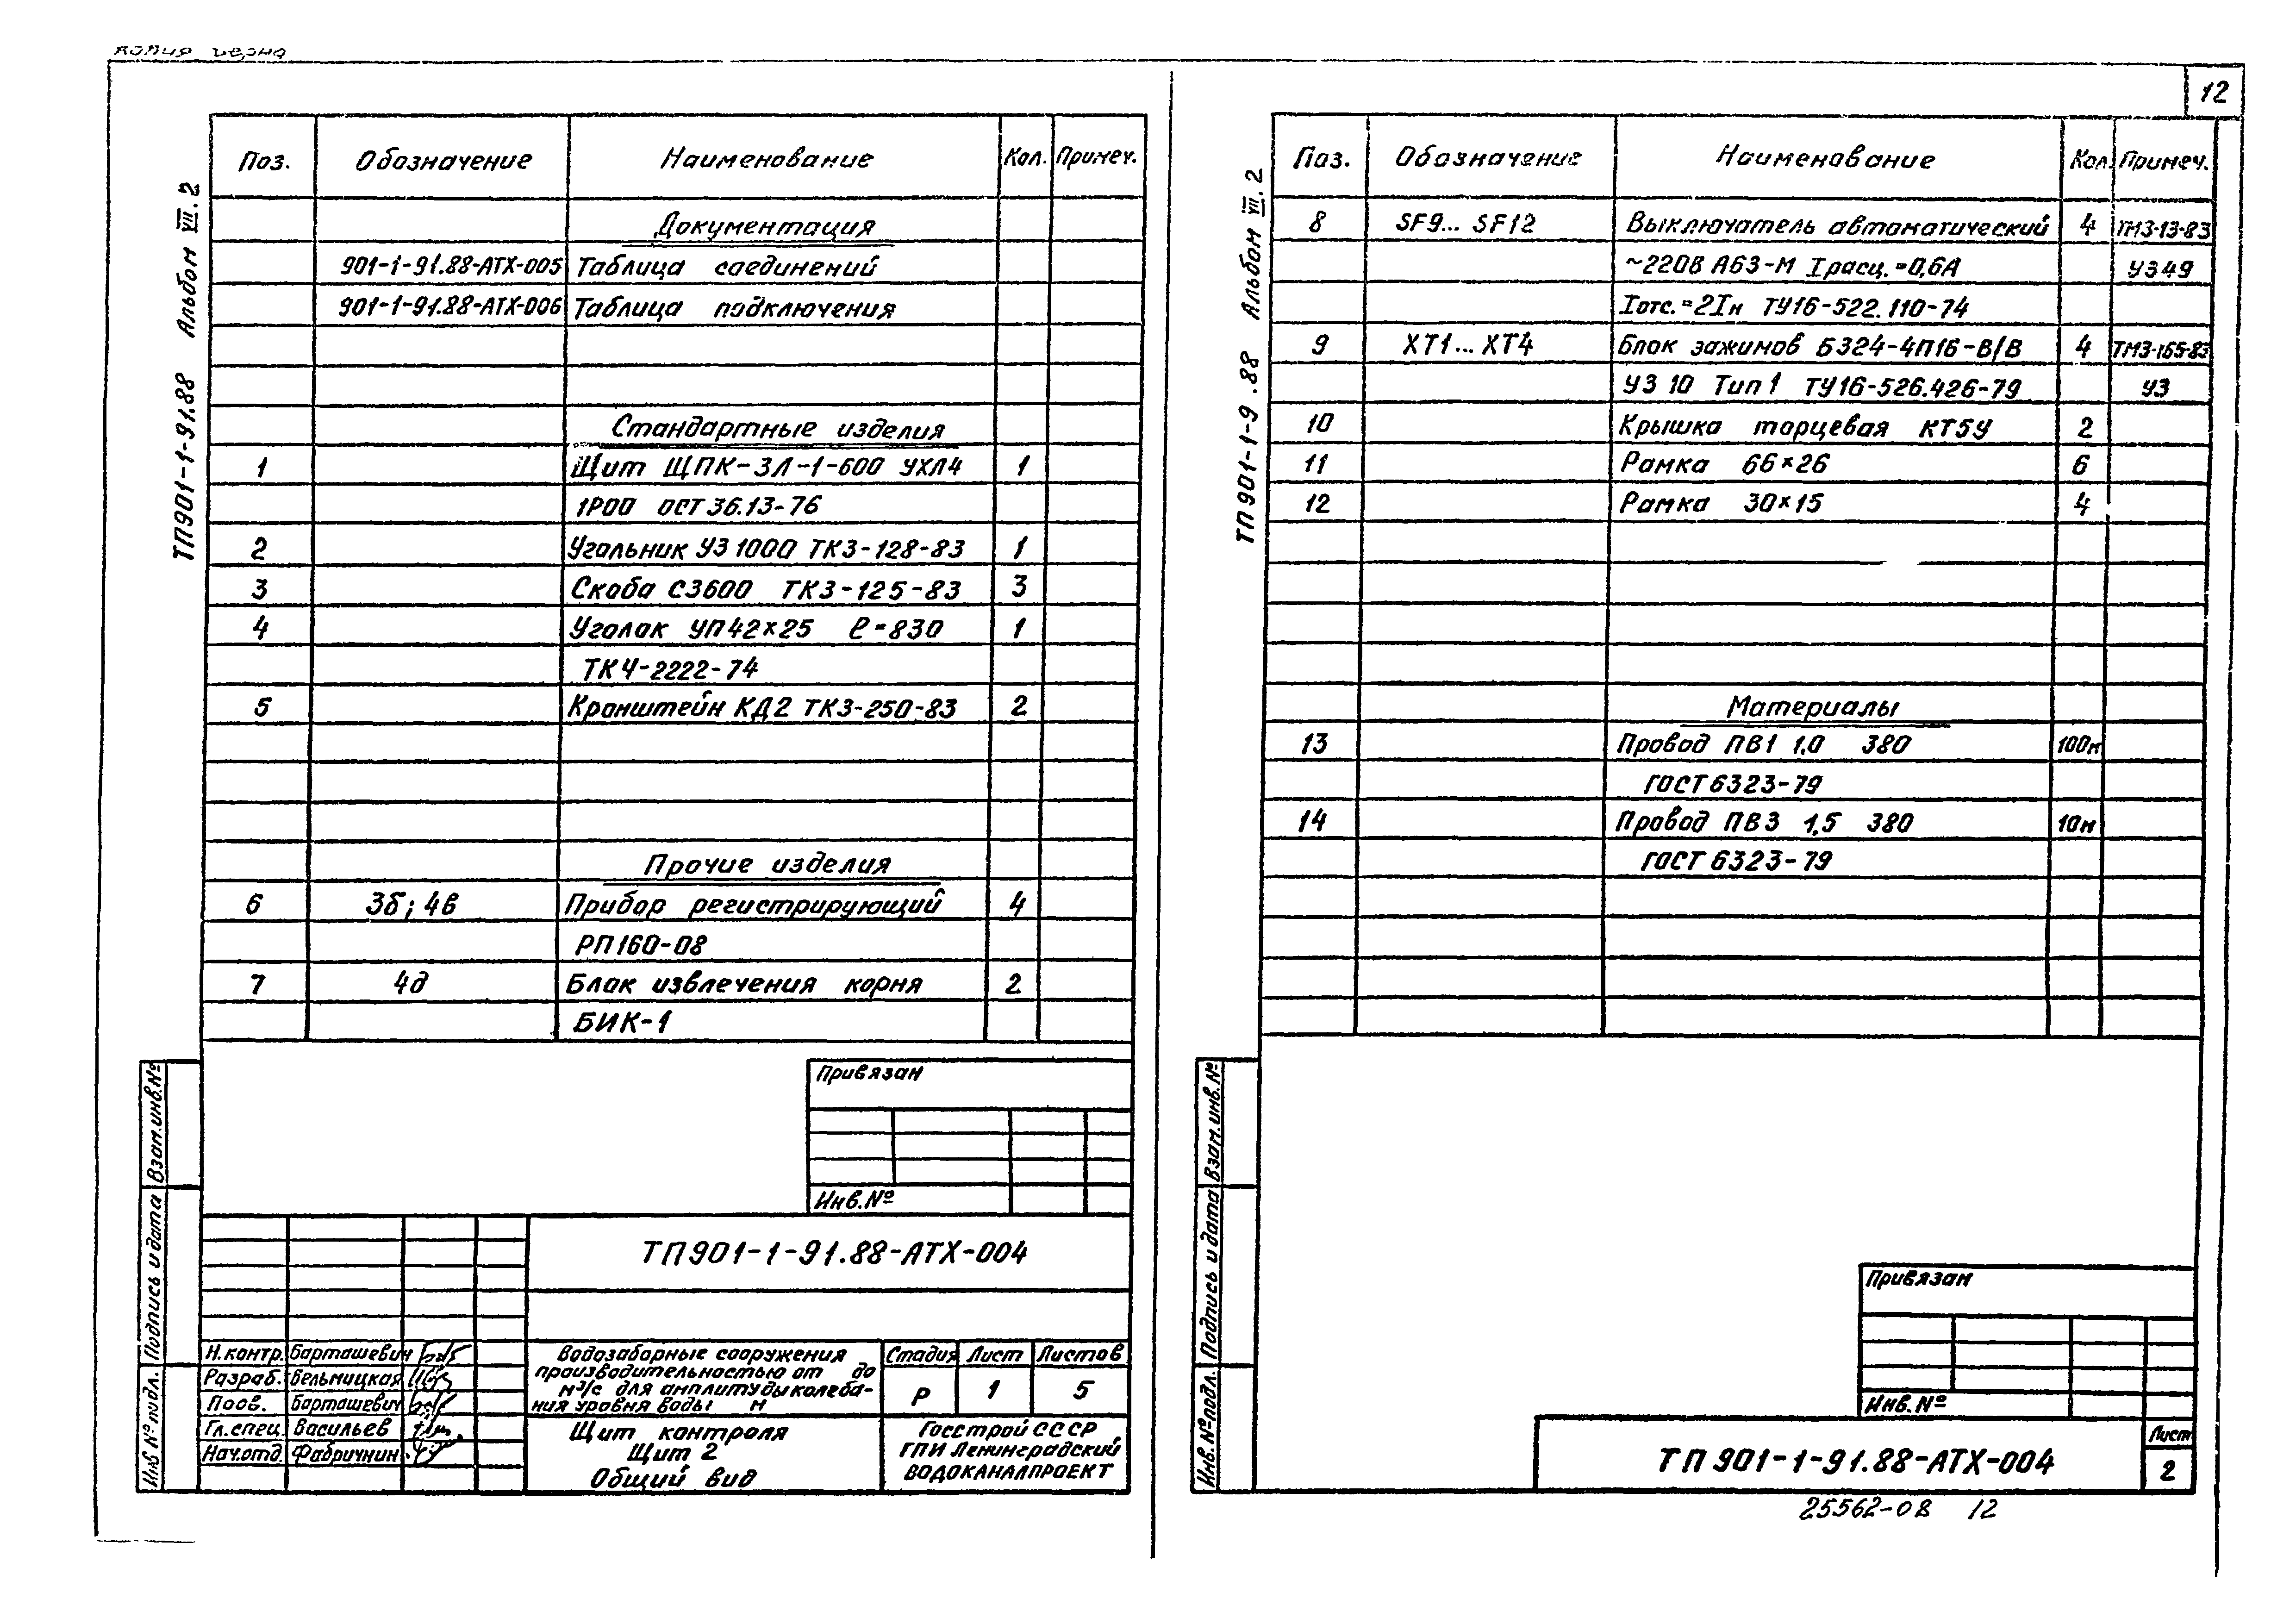 копия верна
12
ТП901-1-91.88 Альбом VII.2
Поз. Обозначение Наименование Кол. Примеч.
Документация
901-1-91.88-АТХ-005 Таблица соединений
901-1-91.88-АТХ-006 Таблица подключения
Стандартные изделия
1 Щит ЩПК-ЗЛ-1-600 УХЛ4 1
1Р00 ОСТ 36.13-76
2 Угольник УЗ 1000 ТКЗ-128-83 1
3 Скоба С3600 ТКЗ-125-83 3
4 Уголок УП42×25 ℓ=830 1
ТК4-2222-74
5 Кронштейн КД2 ТКЗ-250-83 2
Прочие изделия
6 3б; 4в Прибор регистрирующий 4
РП160-08
7 4д Блок извлечения корня 2
БИК-1
Привязан
Инв.№
Взам.инв.№
Подпись и дата
Инв № подл.
ТП901-1-91.88-АТХ-004
Н.контр. Барташевич
Разраб. Бельницкая
Пров. Барташевич
Гл.спец. Васильев
Нач.отд. Фабричнин
Водозаборные сооружения
производительностью от до
м³/с для амплитуды колеба-
ния уровня воды м
Стадия Лист Листов
Р 1 5
Щит контроля
Щит 2
Общий вид
Госстрой СССР
ГПИ Ленинградский
ВОДОКАНАЛПРОЕКТ
ТП901-1-9 .88 Альбом VII.2
Поз. Обозначение Наименование Кол. Примеч.
8 SF9... SF12 Выключатель автоматический 4 ТМЗ-13-83
~220В А63-М Iрасц.=0,6А У349
Iотс.=2Iн ТУ16-522.110-74
9 ХТ1... ХТ4 Блок зажимов Б324-4П16-В/В 4 ТМЗ-165-83
У3 10 Тип 1 ТУ16-526.426-79 У3
10 Крышка торцевая КТ5У 2
11 Рамка 66×26 6
12 Рамка 30×15 4
Материалы
13 Провод ПВ1 1,0 380 100м
ГОСТ 6323-79
14 Провод ПВ3 1,5 380 10м
ГОСТ 6323-79
Взам.инв.№
Подпись и дата
Инв.№ подл.
Привязан
Инв.№
ТП 901-1-91.88-АТХ-004
Лист
2
25562-08 12